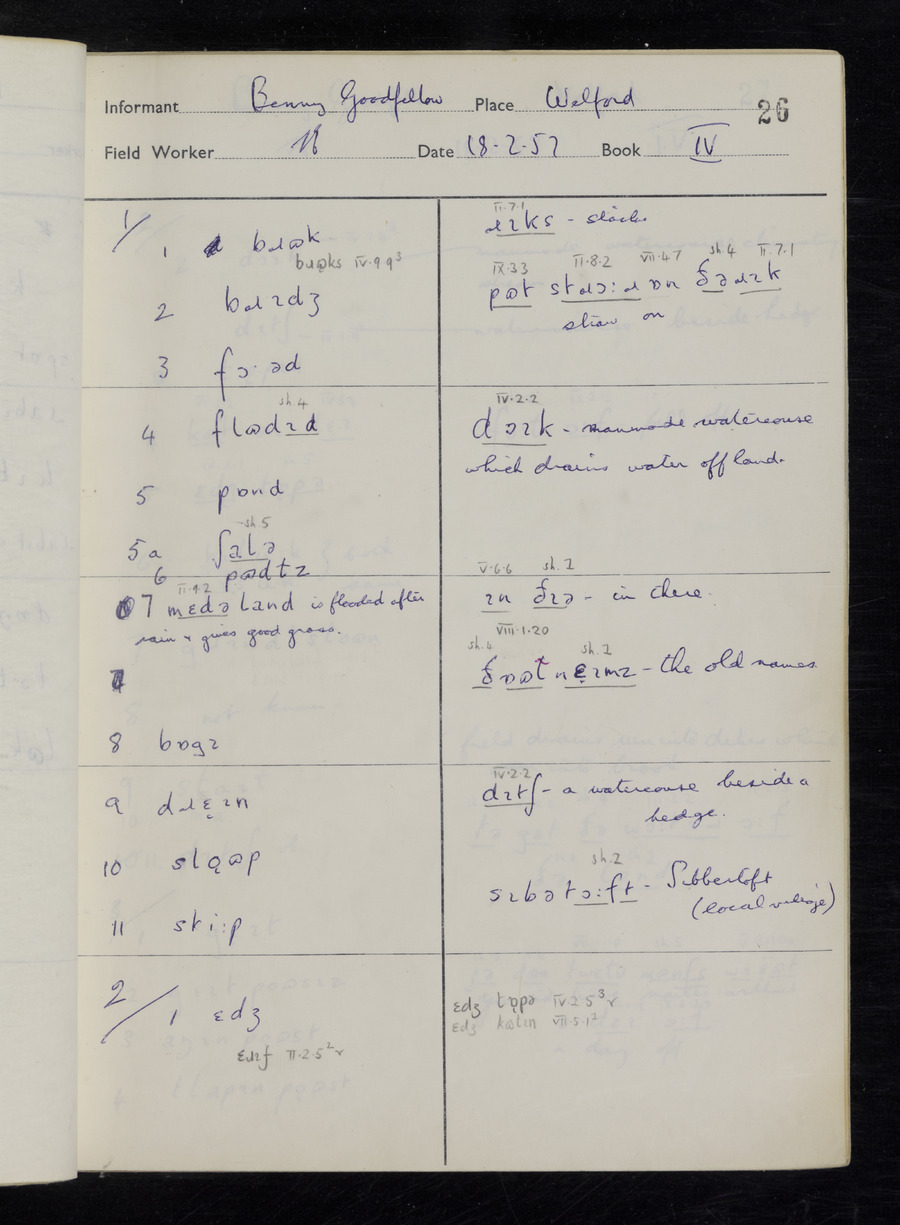 Informant Benny Goodfellow Place Welford 26
Field Worker Date 18.2.57 Book IV
1/
1 bɹɷk
bɹɷ̜ks IV.9.9³
2 bɹɪdʒ
3 fɔ·əd
sh.4
4 flɷdɪd
5 pɒnd
sh.5
5a ʃalə
6 pɷdɫɪ
II.9.2
7 mɛdəland is flooded after
rain & gives good grass.
8 bɒgɪ
9 dɹɛ̝ɪn
10 slɷ̜p
11 sti:p
2/
1 ɛdʒ
II.2.5²v
II.7.1
ɹɪks - stacks
IX.3.3 II.8.2 VII.4.7 sh.4 II.7.1
pɷt stɹɔ:ɹ ɒn ðə ɹɪk
straw on
IV.2.2
dɔɪk - manmade watercourse
which drains water off land.
V.6.6 sh.1
ɪn ðɪə - in there.
VIII.1.20
sh.4 sh.1
- the old names
IV.2.2
dɪtʃ - a watercourse beside a
hedge.
sh.2
sɪbətɔ:ft - Sibbertoft
(local village)
ɛdʒ IV 2.5³v
ɛdʒ VII.5.1²